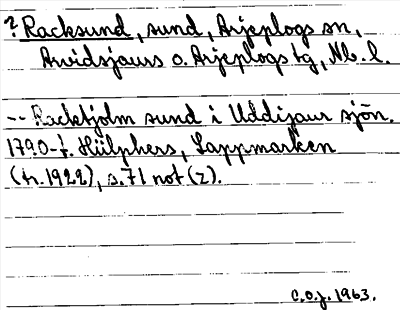 ? Racksund, sund, Arjeplogs sn,
Arvidsjaurs o. Arjeplogs tg, Nb. l.
-- Racktjolm sund i Uddijaur sjön.
1790-t. Hülphers, Lappmarken
(tr. 1922), s. 71 not (z).
C.O.J. 1963.